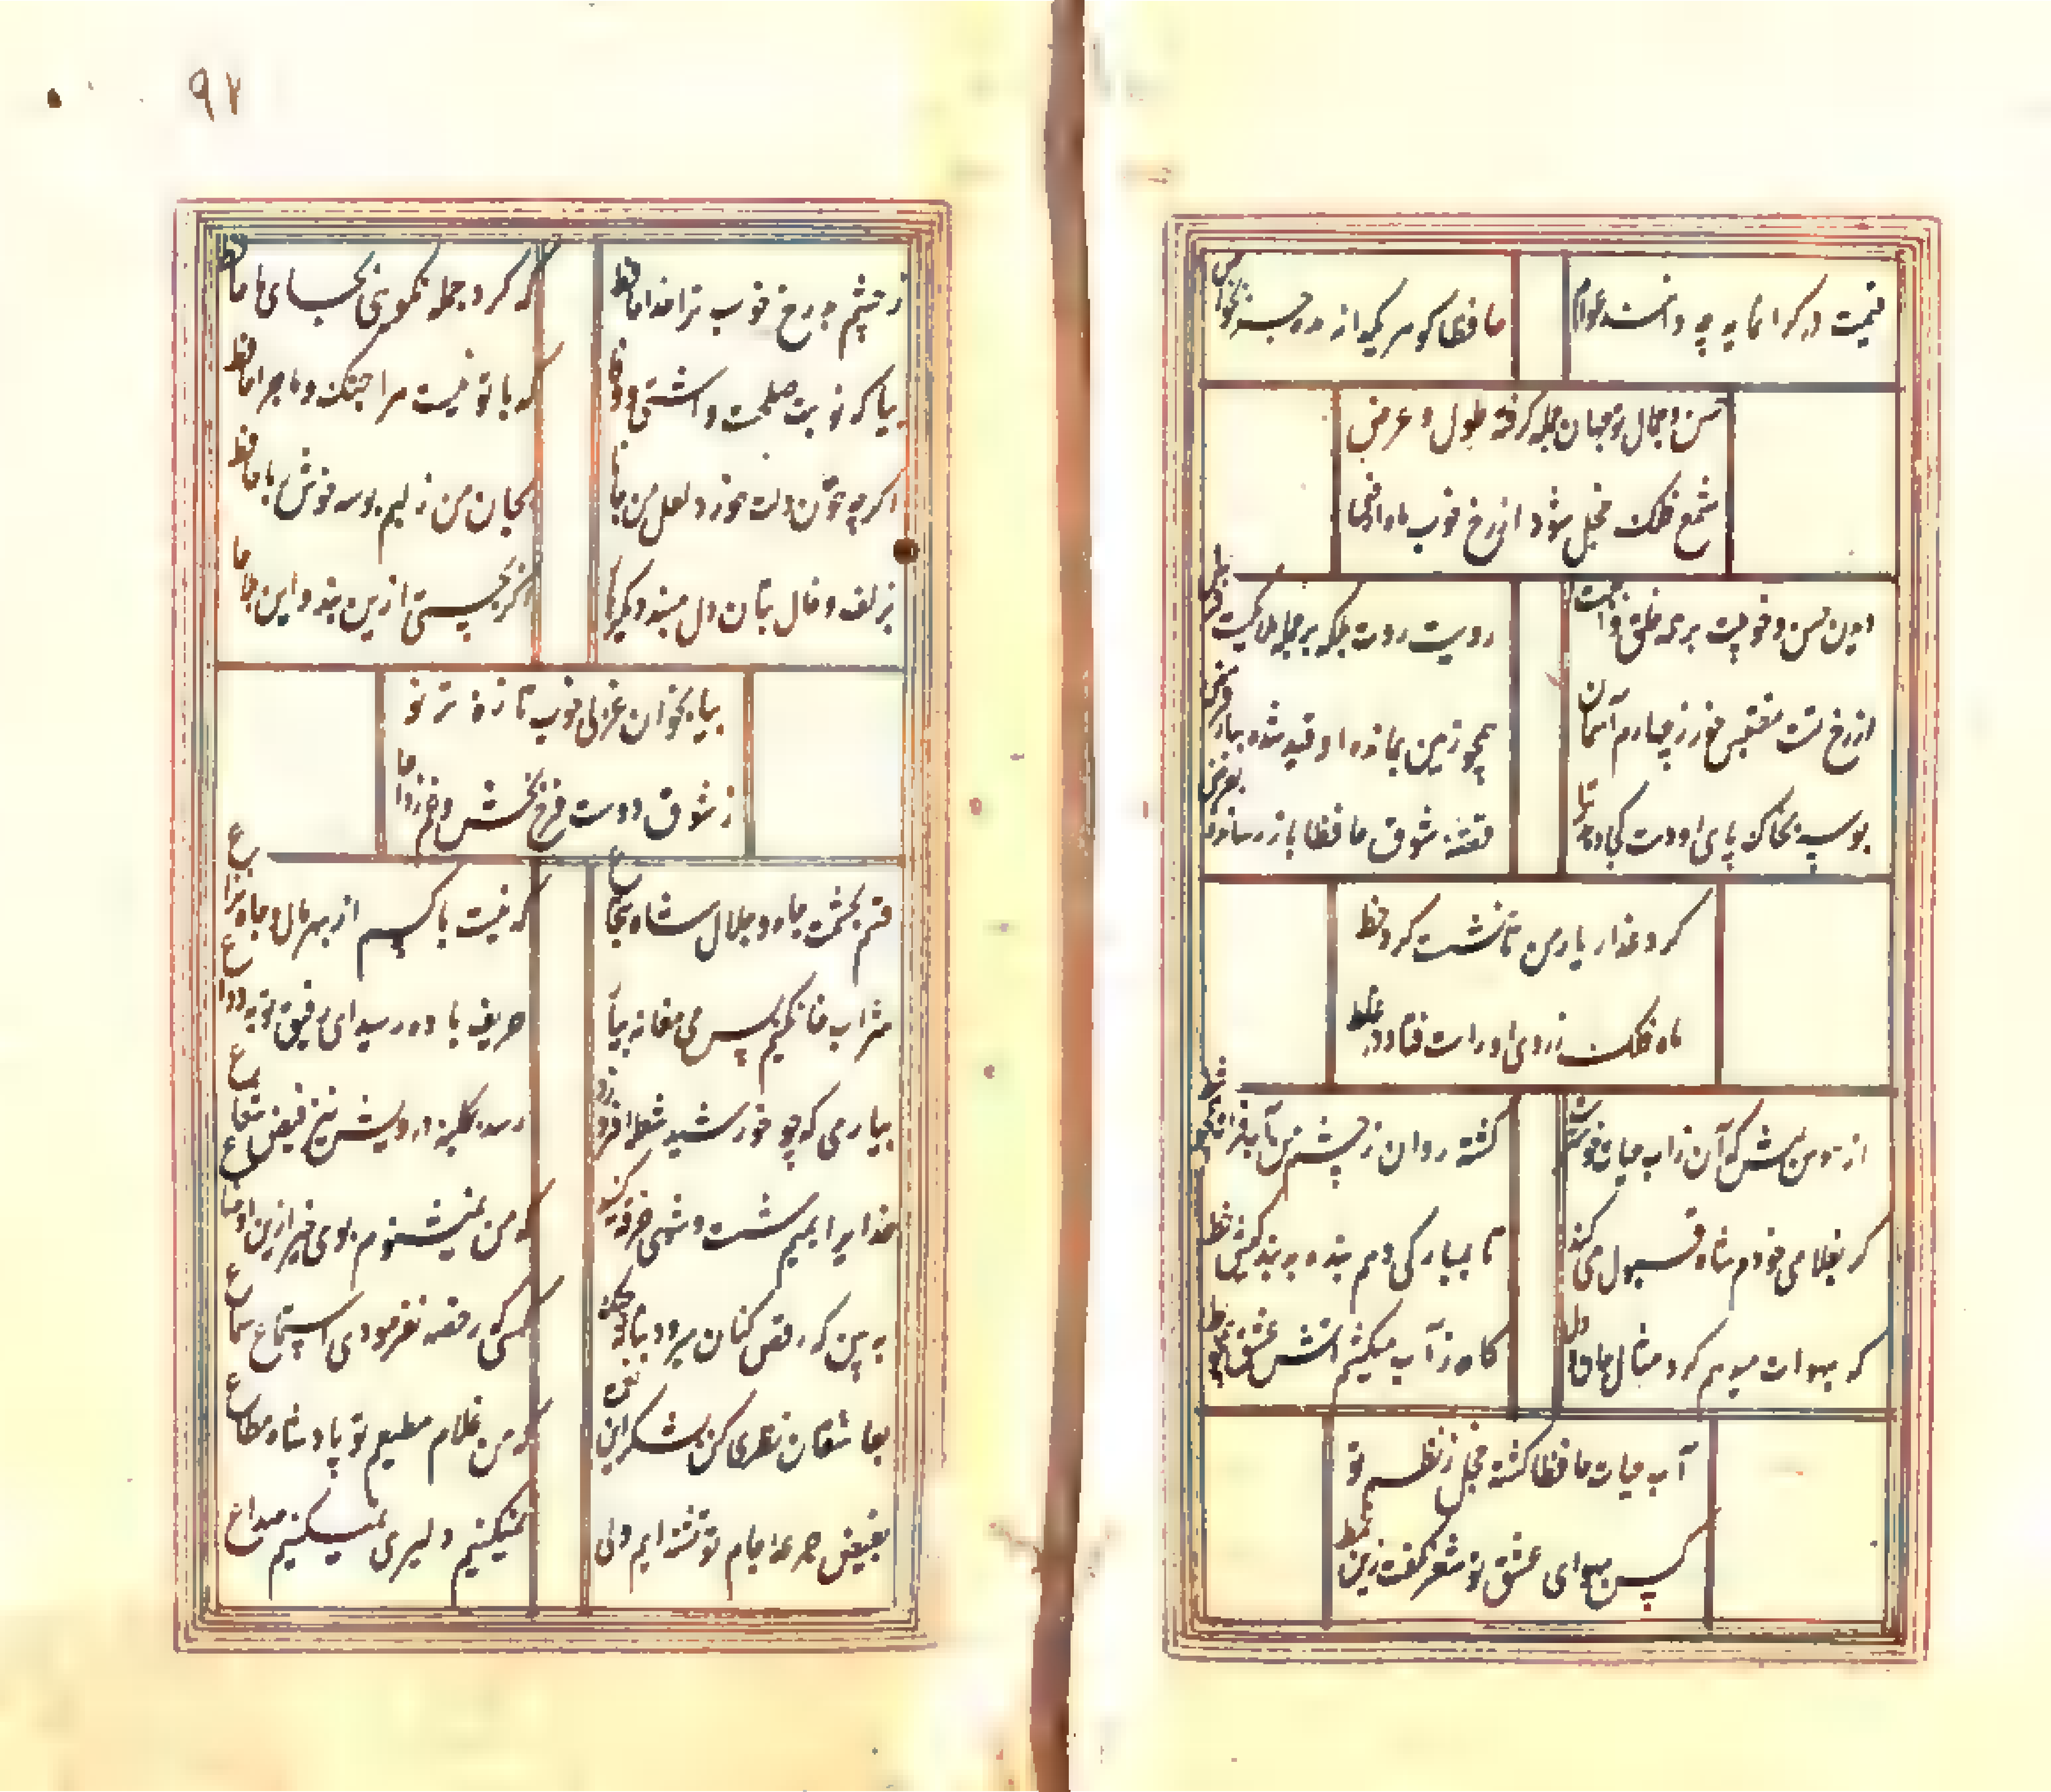 قیمت در گرانمایه چه دانند عوام
حافظا گوهر یکدانه مده جز بخواص
حسن و جمال تو جهان جمله گرفت طول و عرض
شمع فلک خجل شود از رخ خوب ماه ارض
دیدن حسن و خوبیت بر همه خلق واجبست
رویت روت بلکه بر جمله ملایکست فرض
از رخ تست مقتبس خور ز چهارم آسمان
همچو زمین بمانده او قید شده ببار قرض
بوسه بخاک پای او دست کجا دهد ترا
قصه شوق حافظا باز رساندت بعرض
گرد عذار یار من تا نبشت گرد خط
ماه فلک ز روی او راست فتاد در غلط
از هوس لبش که آن ز آب حیات خوشترست
گشته روان ز چشم من
گر بغلامی خودم شاه قبول می کند
تا بمبارکی دهم بنده به بندگیش خط
که بهوات میدهم گرد مثال جان و دل
گاه ز آب میکشم آتش عشق
آب حیات حافظا گشته خجل ز نظم تو
کس بهوای عشق تو شعر نگفت زین نمط
۹۲
ز چشم بد رخ خوب ترا خدا حافظ
که کرد جمله نکویی بجای ما حافظ
بیا که نوبت صلحست و آشتی و وفا
که با تو نیست مرا جنگ و ماجرا حافظ
اگرچه خون دلت خورد لعل من بستان
بجان من ز لبم بوسه خوش بها حافظ
بزلف و خال بتان دل مبند دیگر بار
اگر بجستی ازین بند و این بلا حافظ
بیا بخوان غزلی خوب تازه تر نو
ز شوق دوست فرح بخش و غم زدا حافظ
قسم بحشمت و جاه و جلال شاه شجاع
که نیست با کسم از بهر مال و جاه نزاع
شراب خانگیم بس می مغانه بیار
حریف باده رسید ای رفیق توبه وداع
بیار می که چو خورشید شعله افروزد
رسد بکلبه درویش نیز فیض شعاع
خدایرا بمیم شست و شوی خرقه کنید
که من نمیشنوم بوی خیر ازین اوضاع
به بین که رقص کنان میرود بناله چنگ
کسی که رقصه نفرمودی استماع سماع
بعاشقان نظری کن بشکر این نعمت
که من غلام مطیعم تو پادشاه مطاع
بفیض جرعه جام تو تشنه ایم ولی
نمیکنیم دلیری نمیدهیم صداع